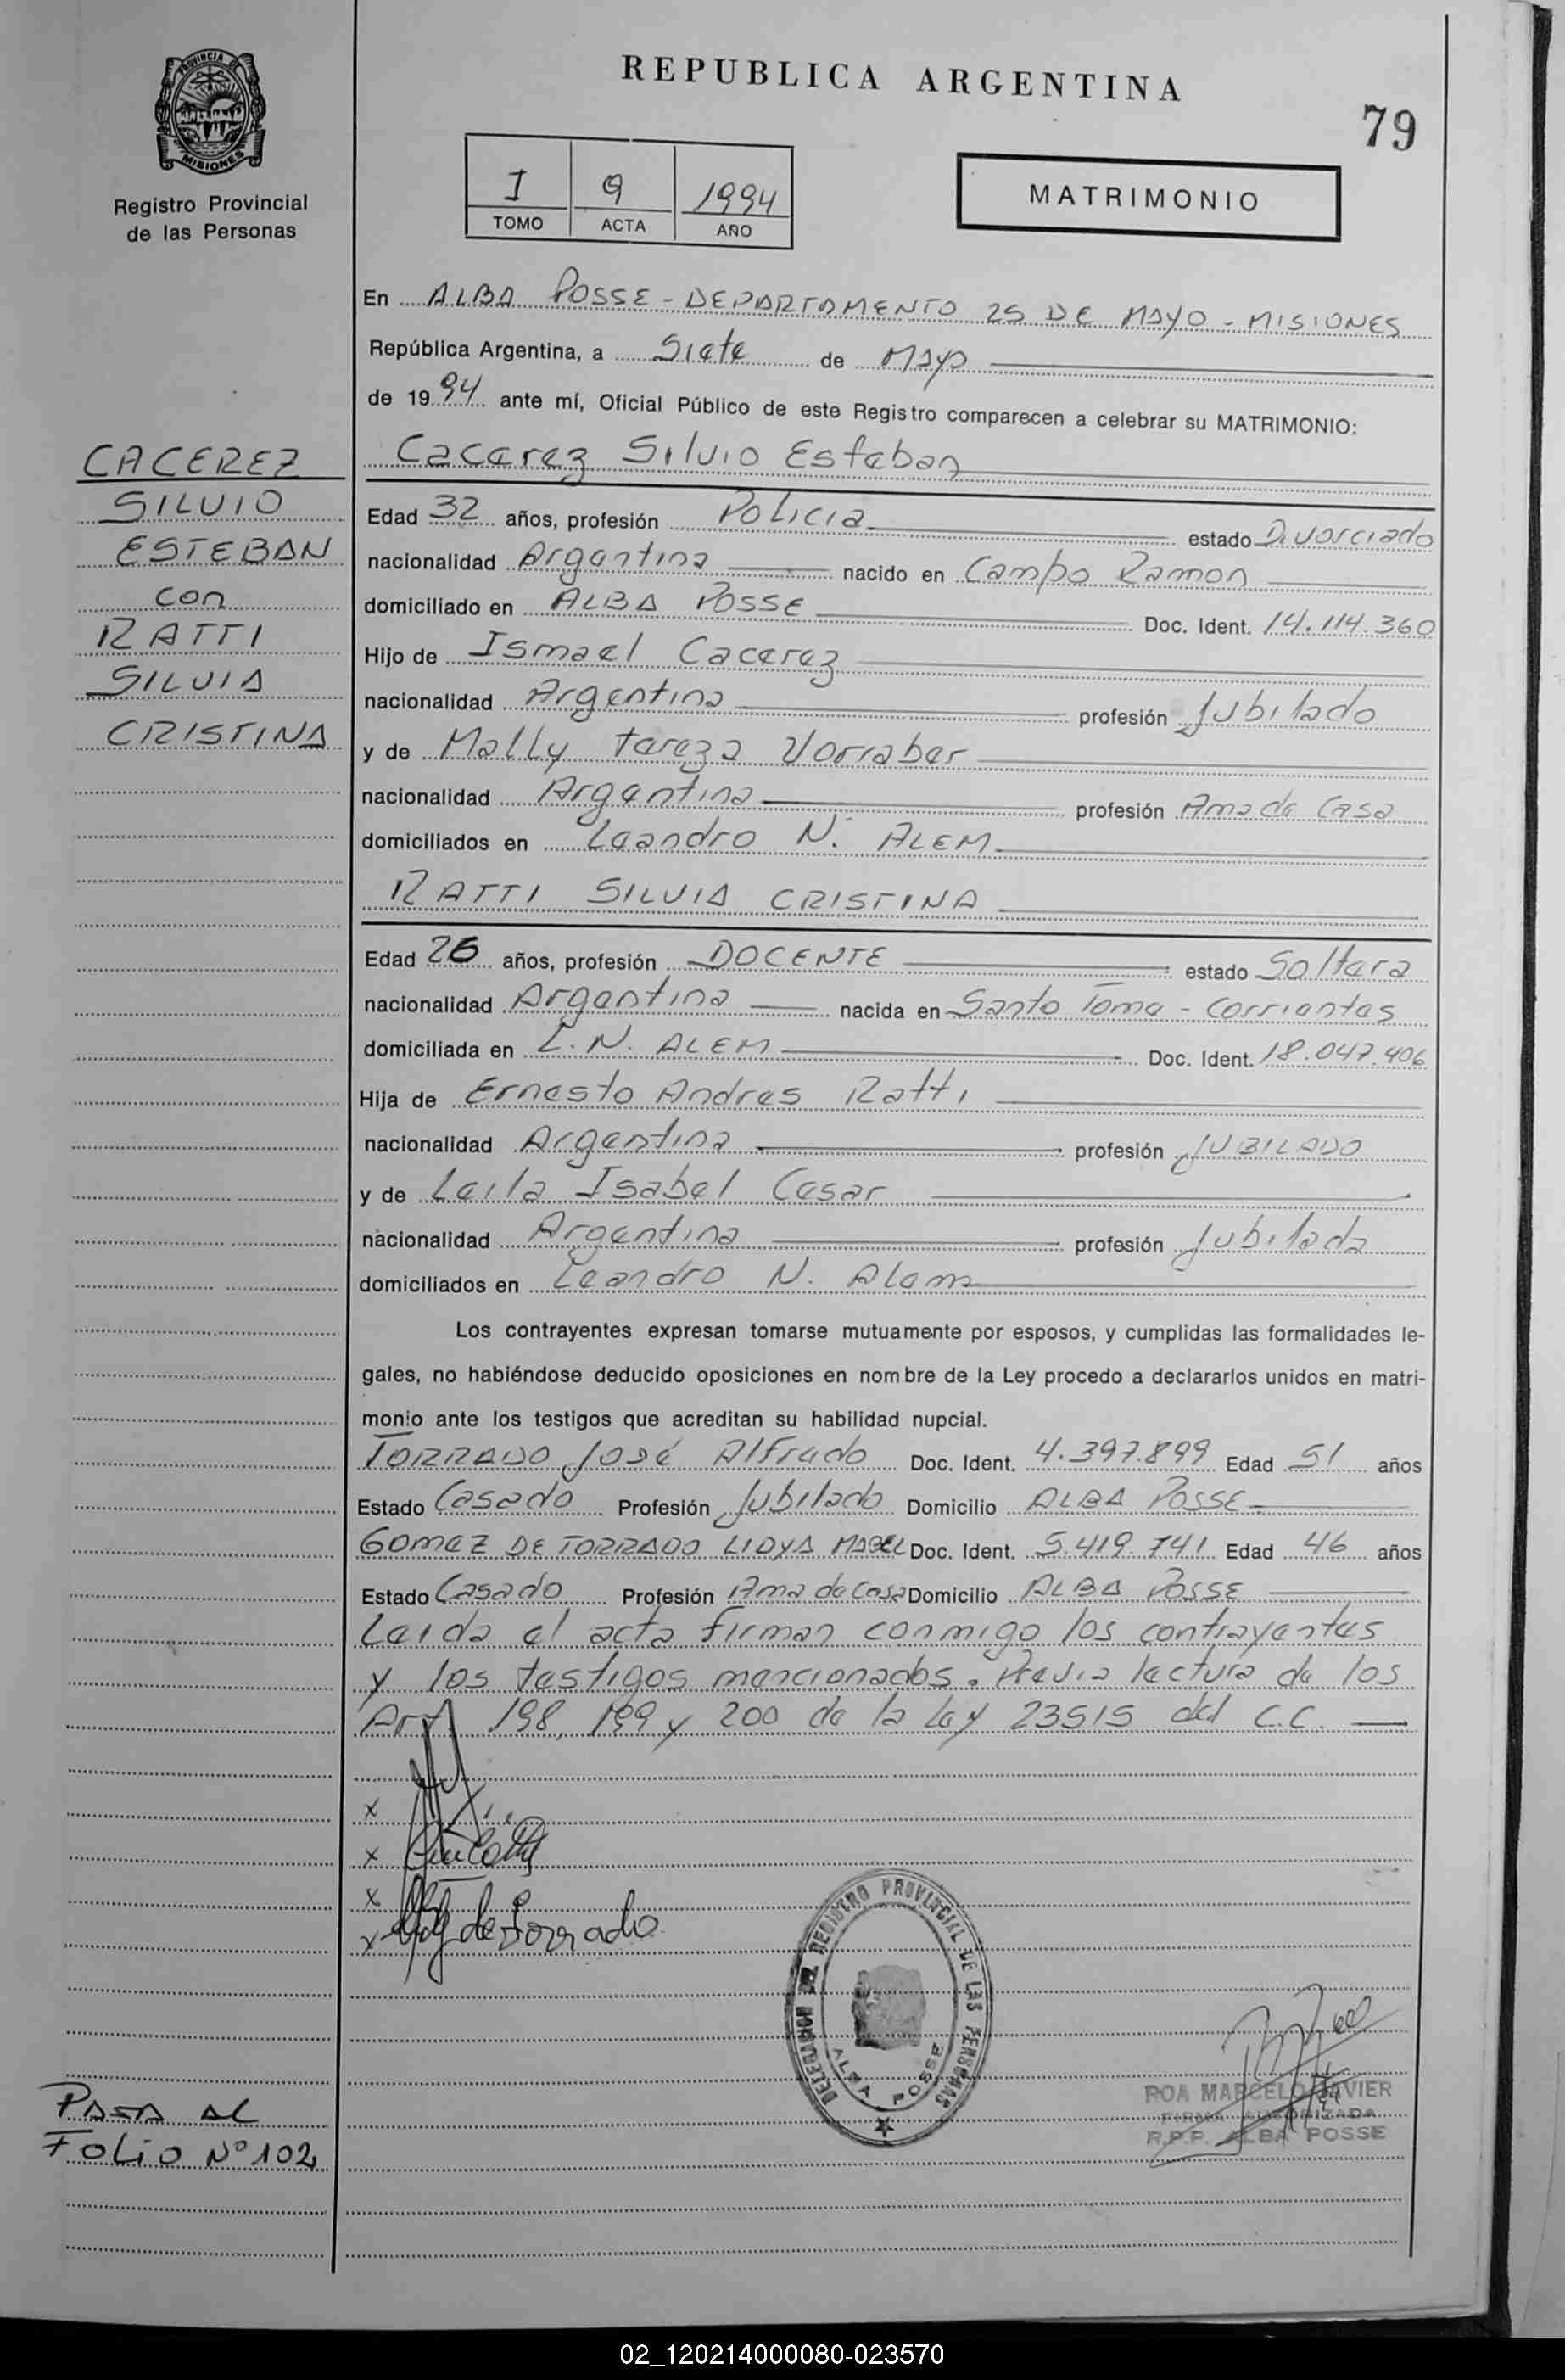 PROVINCIA DE
MISIONES
Registro Provincial
de las Personas
REPUBLICA ARGENTINA
79
I 9 1994
TOMO ACTA AÑO
MATRIMONIO
CACEREZ
SILVIO
ESTEBAN
con
RATTI
SILVIA
CRISTINA
En ALBA POSSE - DEPARTAMENTO 25 DE MAYO - MISIONES
República Argentina, a Siete de Mayo
de 1994 ante mí, Oficial Público de este Registro comparecen a celebrar su MATRIMONIO:
Cacerez Silvio Esteban
Edad 32 años, profesión Policia estado Divorciado
nacionalidad Argentina nacido en Campo Ramon
domiciliado en ALBA POSSE Doc. Ident. 14.114.360
Hijo de Ismael Cacerez
nacionalidad Argentina profesión Jubilado
y de Mally tereza Vorraber
nacionalidad Argentina profesión Ama de Casa
domiciliados en Leandro N. ALEM
RATTI SILVIA CRISTINA
Edad 26 años, profesión DOCENTE estado Soltera
nacionalidad Argentina nacida en Santo Tome - Corrientes
domiciliada en L. N. ALEM Doc. Ident. 18.047.406
Hija de Ernesto Andres Ratti
nacionalidad Argentina profesión JUBILADO
y de Leila Isabel Cesar
nacionalidad Argentina profesión Jubilada
domiciliados en Leandro N. Alem
Los contrayentes expresan tomarse mutuamente por esposos, y cumplidas las formalidades le-
gales, no habiéndose deducido oposiciones en nombre de la Ley procedo a declararlos unidos en matri-
monio ante los testigos que acreditan su habilidad nupcial.
TORRADO José Alfredo Doc. Ident. 4.397.899 Edad 51 años
Estado Casado Profesión Jubilado Domicilio ALBA POSSE
GOMEZ DE TORRADO LIDYA MABEL Doc. Ident. 5.419.741 Edad 46 años
Estado Casado Profesión Ama de Casa Domicilio ALBA POSSE
Leida el acta firman conmigo los contrayentes
y los testigos mencionados. Previa lectura de los
Art 198, 199 y 200 de la Ley 23515 del C.C.
x
x
x
x de Torrado
DELEGACION DEL REGISTRO PROVINCIAL DE LAS PERSONAS
ALBA POSSE
ROA MARCELO JAVIER
FIRMA AUTORIZADA
R.P.P. ALBA POSSE
PASA AL
FOLIO Nº 102
02_120214000080-023570